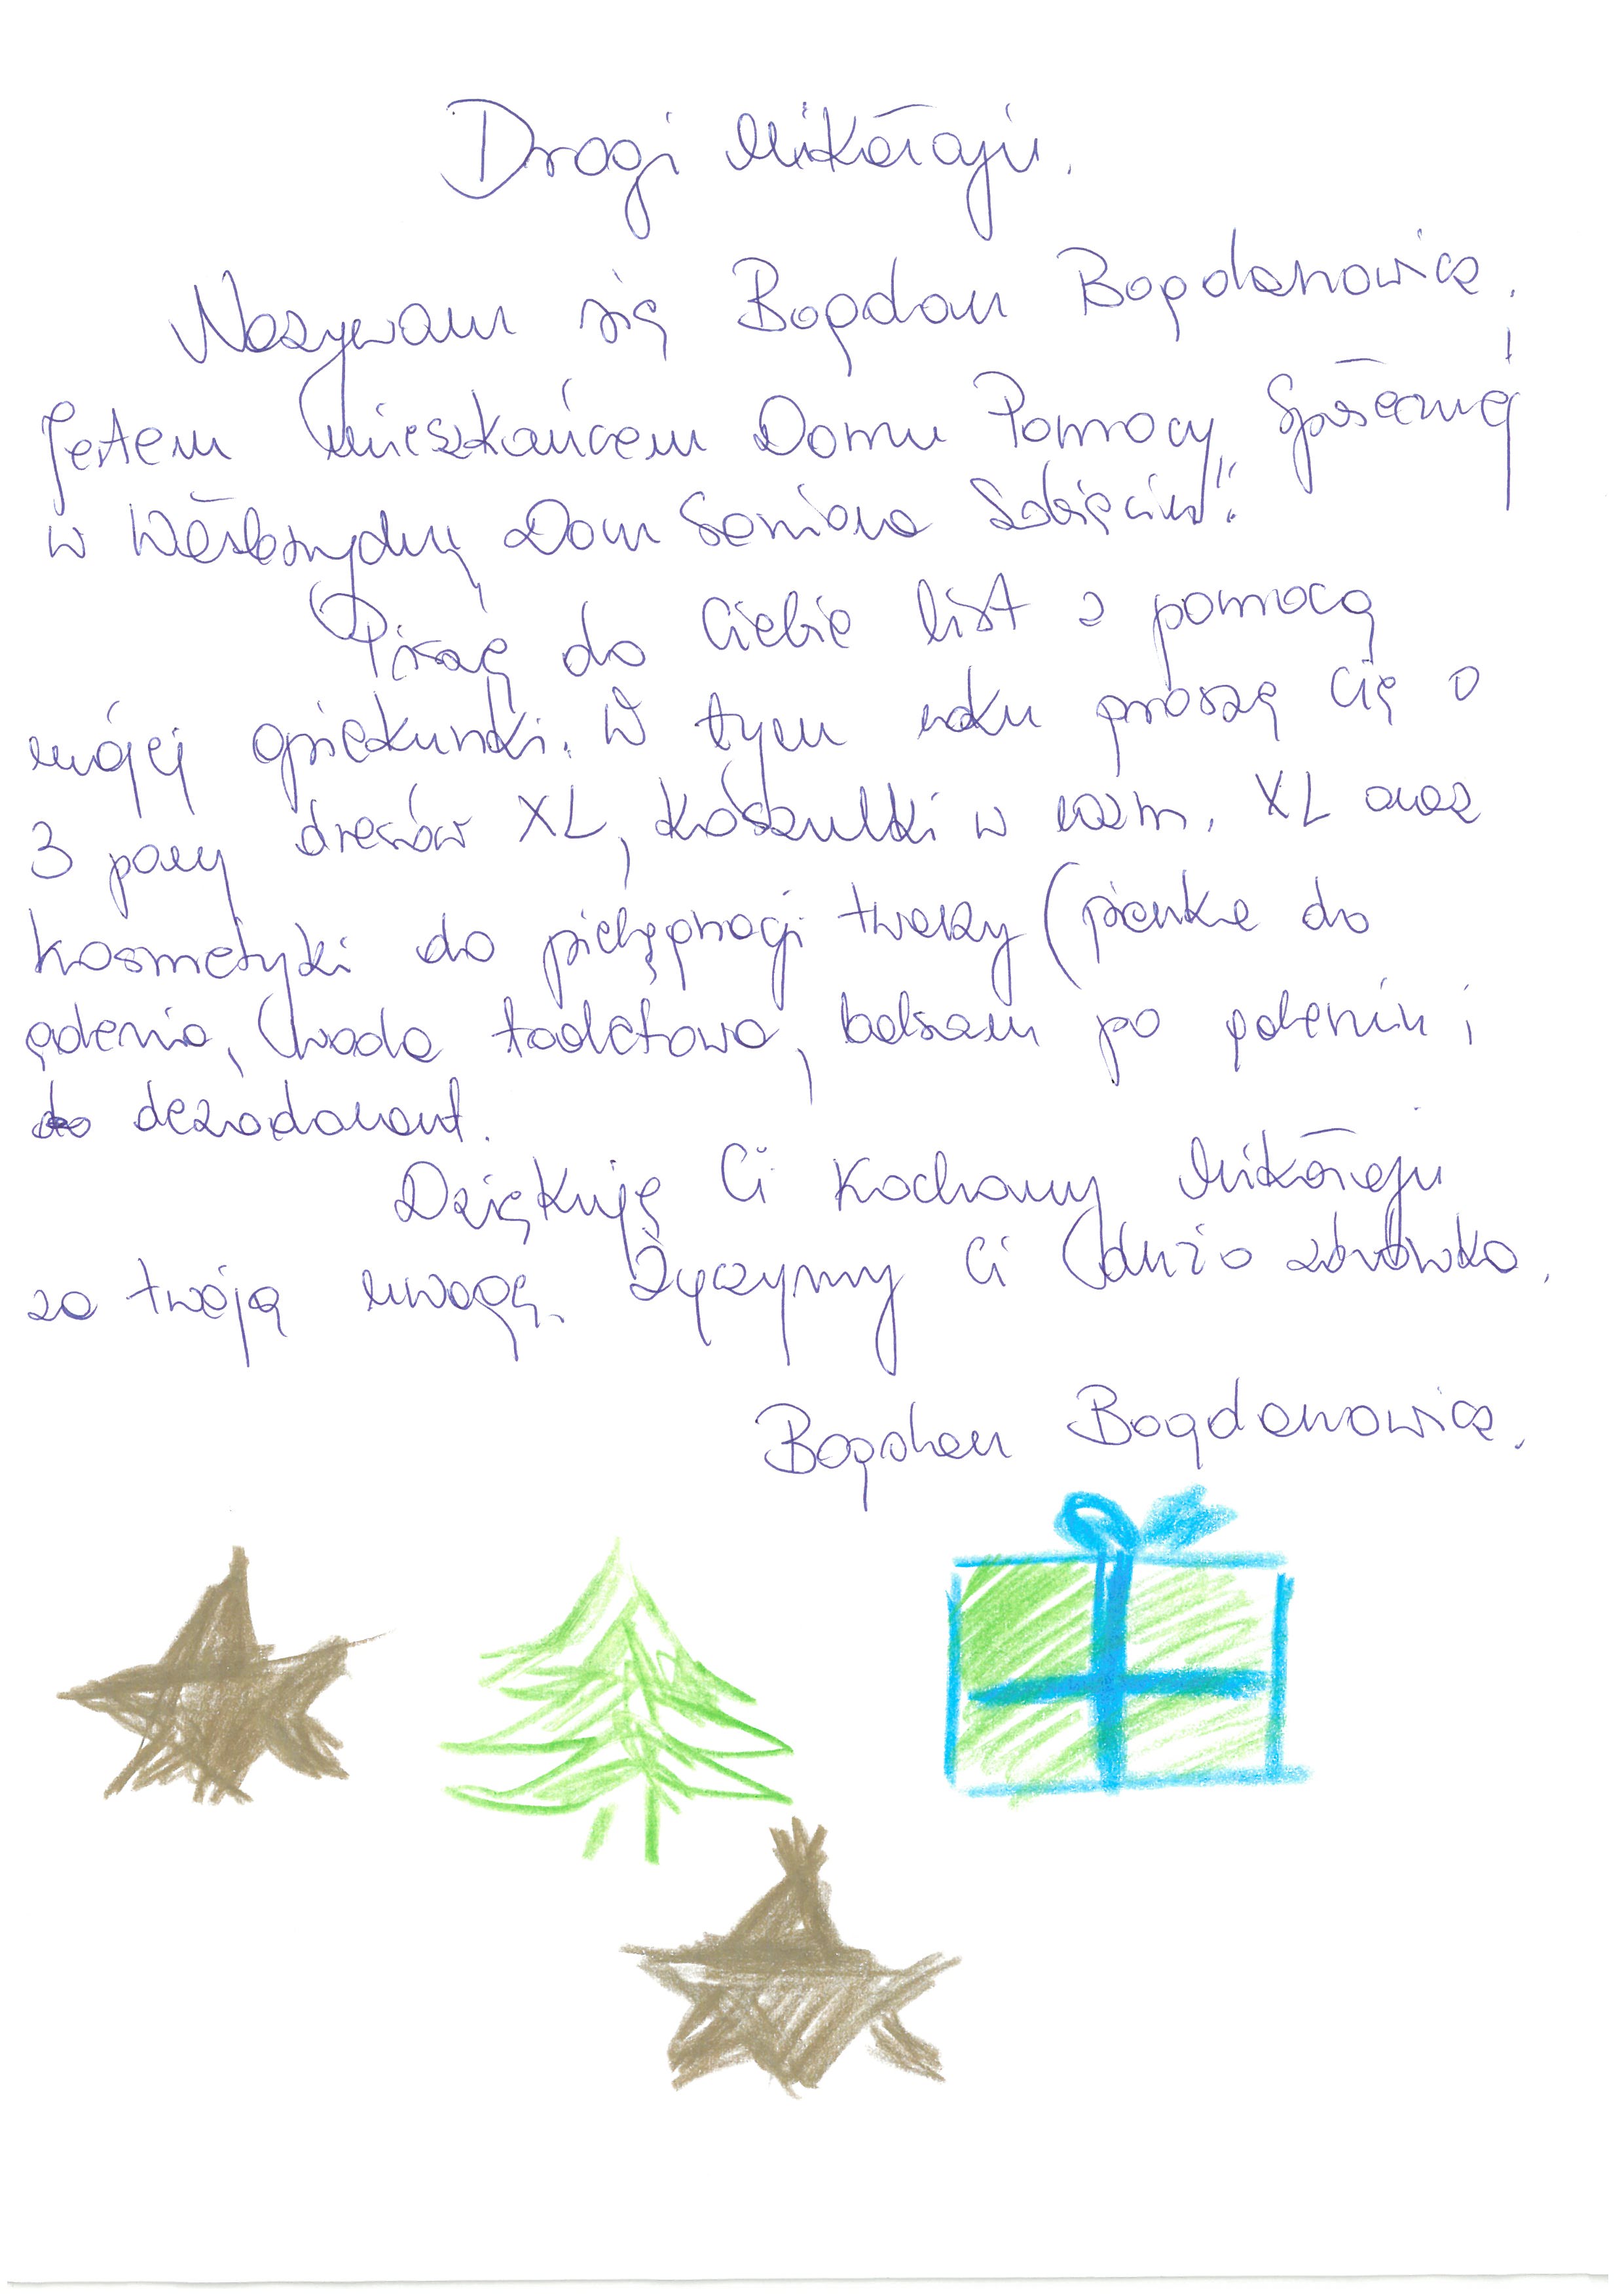 Drogi Mikołaju.
Nazywam się Bogdan Bogdanowicz.
Jestem mieszkańcem Domu Pomocy Społecznej
w Wałbrzychu, Dom Seniora Sobięcin".
Piszę do Ciebie list z pomocą
mojej opiekunki. W tym roku proszę Cię o
3 pary dresów XL, koszulki w rozm. XL oraz
kosmetyki do pielęgnacji twarzy (pianka do
golenia, woda toaletowa, balsam po goleniu i
dezodorant.
Dziękuję Ci Kochany Mikołaju
za twoją uwagę. Życzymy Ci dużo zdrówka.
Bogdan Bogdanowicz.